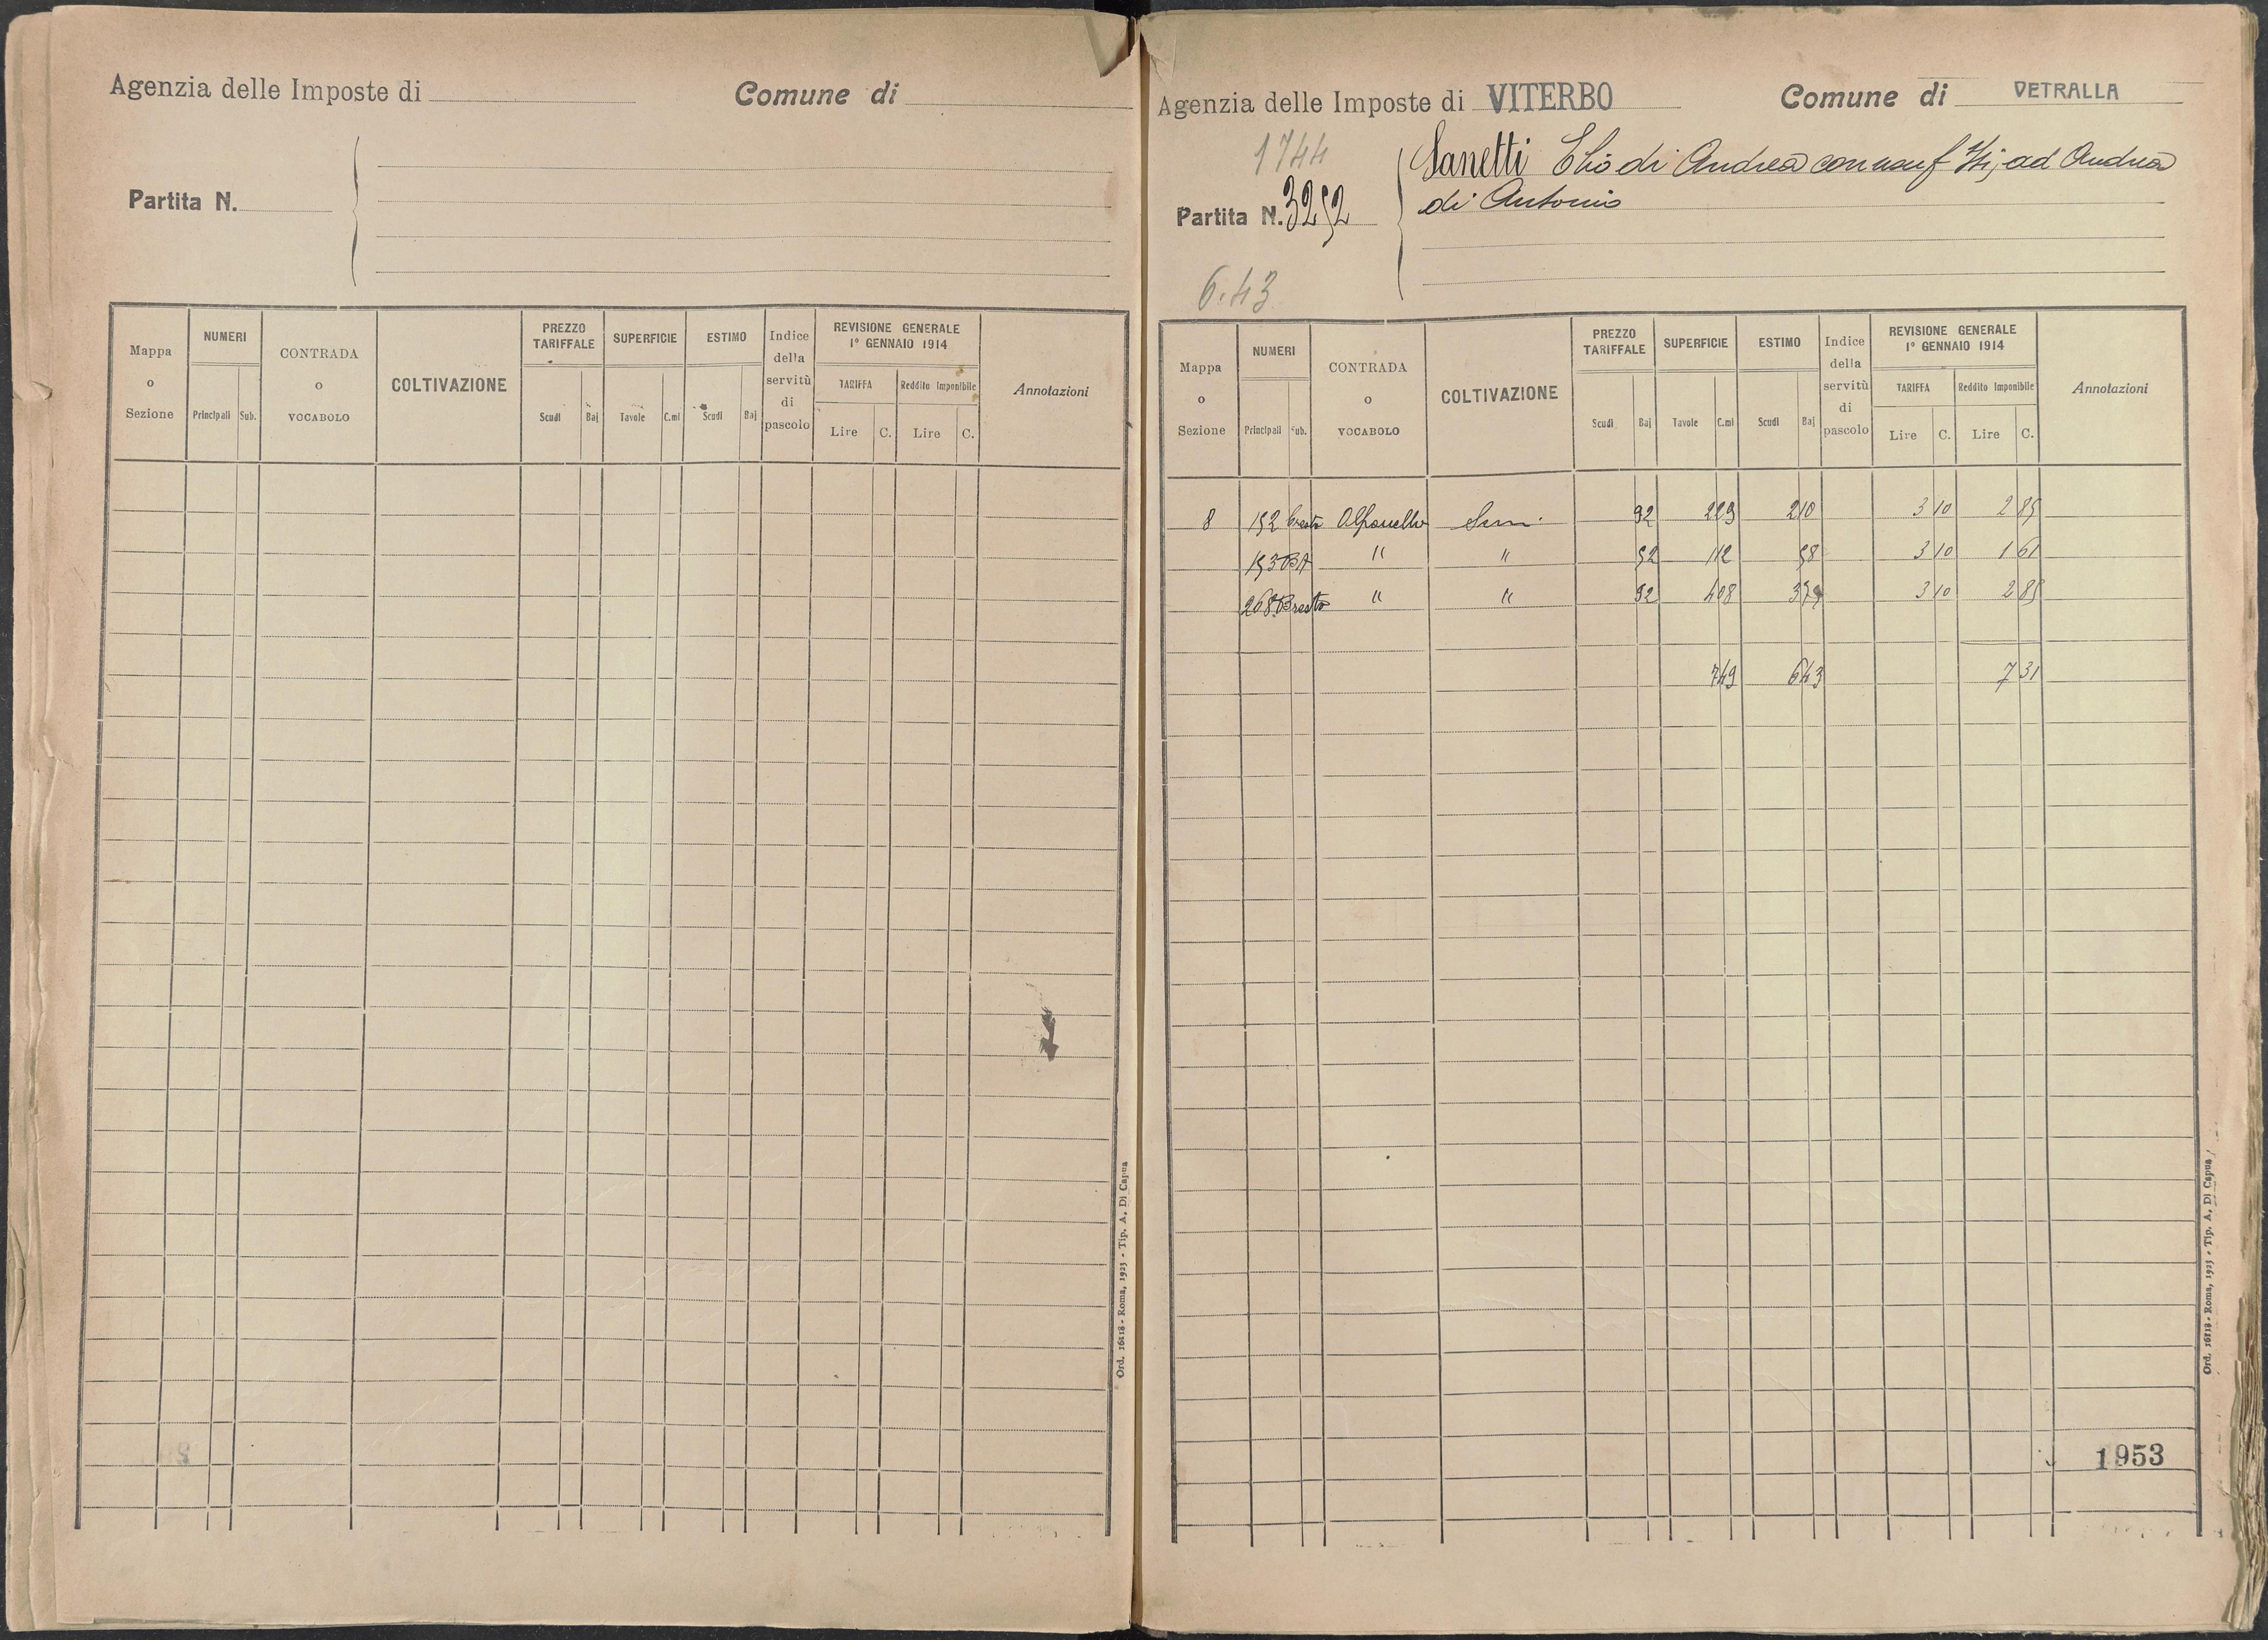 Agenzia delle Imposte di
Comune di
Partita N.
Mappa o Sezione
NUMERI
Principali Sub.
CONTRADA o VOCABOLO
COLTIVAZIONE
PREZZO TARIFFALE
Scudi Baj
SUPERFICIE
Tavole C.mi
ESTIMO
Scudi Baj
Indice della servitù di pascolo
REVISIONE GENERALE
1° GENNAIO 1914
TARIFFA
Lire C.
Reddito Imponibile
Lire C.
Annotazioni
Ord. 16118 - Roma, 1923 - Tip. A. Di Capua
Agenzia delle Imposte di VITERBO
Comune di VETRALLA
1744
Partita N. 3252
Sanetti Elio di Andrea con usuf ad Andrea
di Antonio
6.43
Mappa o Sezione
NUMERI
Principali Sub.
CONTRADA o VOCABOLO
COLTIVAZIONE
PREZZO TARIFFALE
Scudi Baj
SUPERFICIE
Tavole C.mi
ESTIMO
Scudi Baj
Indice della servitù di pascolo
REVISIONE GENERALE
1° GENNAIO 1914
TARIFFA
Lire C.
Reddito Imponibile
Lire C.
Annotazioni
8 152 Sem. 92 229 210 3 10 2 85
153 " " 52 112 58 3 10 1 61
268 Bresto " " 92 408 375 3 10 2 85
749 643 7 31
1953
Ord. 16118 - Roma, 1923 - Tip. A. Di Capua